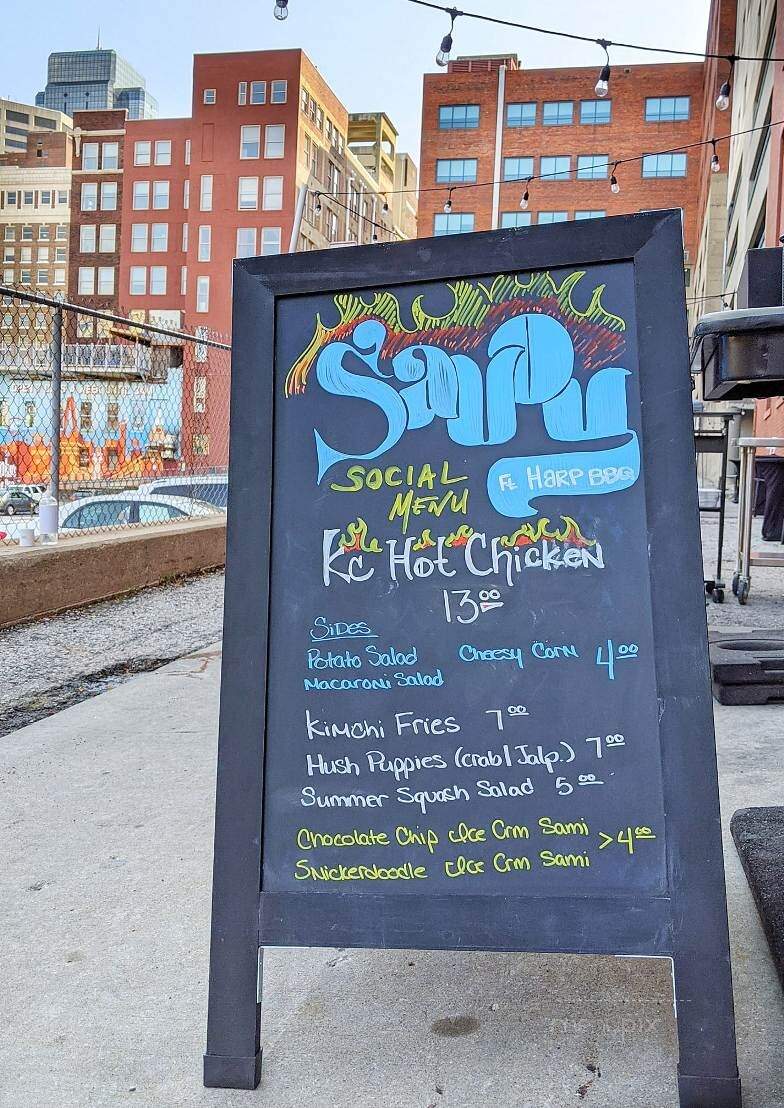 Savoy
SOCIAL
MENU
Ft. HARP BBQ
KC Hot Chicken
13.00
Sides
Potato Salad Cheesy Corn 4.00
Macaroni Salad
Kimchi Fries 7.00
Hush Puppies (crab | Jalp.) 7.00
Summer Squash Salad 5.00
Chocolate Chip Ice Crm Sami >4.00
Snickerdoodle Ice Crm Sami
menupix